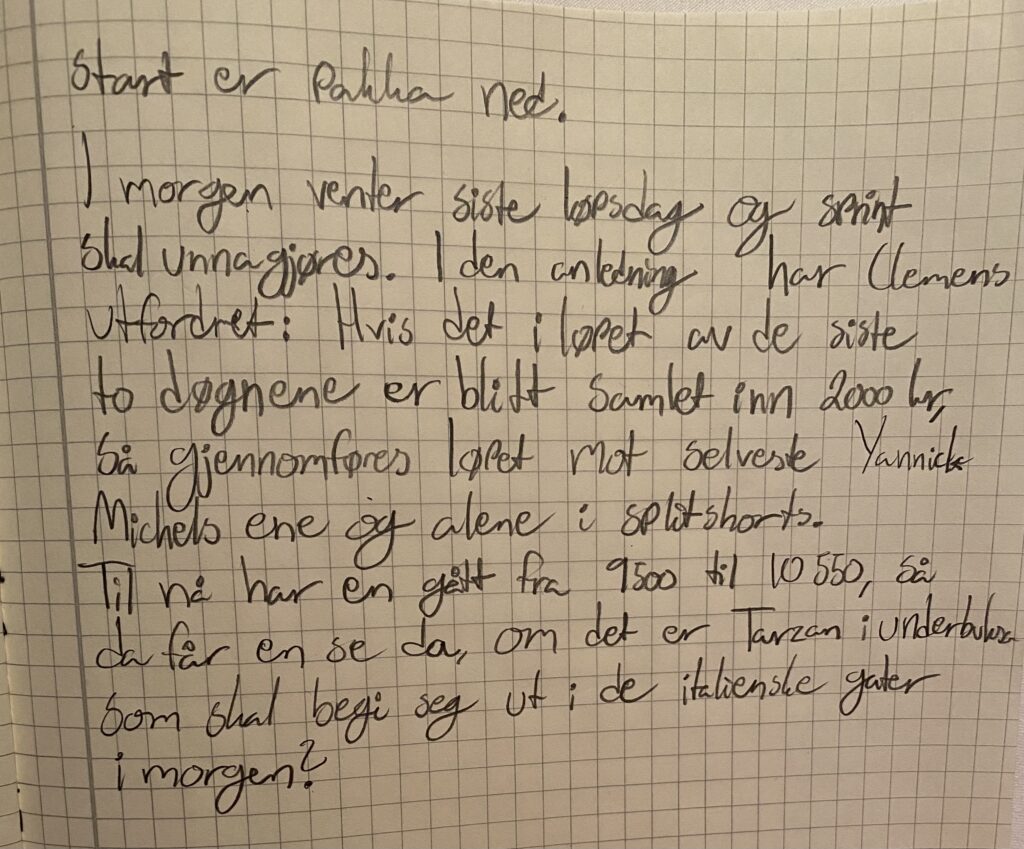 Start er pakka ned.
I morgen venter siste løpsdag og sprint
skal unnagjøres. I den anledning har Clemens
utfordret: Hvis det i løpet av de siste
to døgnene er blitt samlet inn 2000 kr,
så gjennomføres løpet mot selveste Yannick
Michels ene og alene i splitshorts.
Til nå har en gått fra 9500 til 10 550, så
da får en se da, om det er Tarzan i underbuksa
som skal begi seg ut i de italienske gater
i morgen?